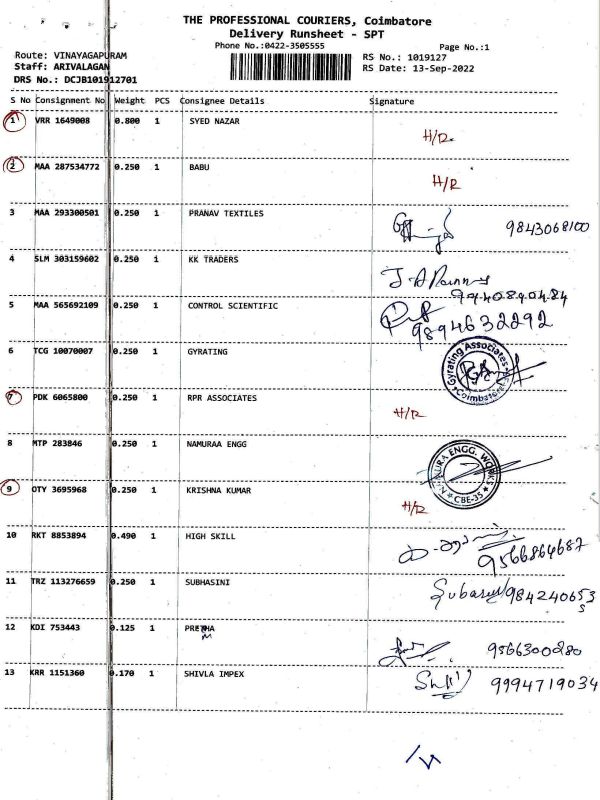 THE PROFESSIONAL COURIERS, Coimbatore
Delivery Runsheet - SPT
Phone No.:0422-3505555
Page No.:1
Route: VINAYAGAPURAM
RS No.: 1019127
Staff: ARIVALAGAN
RS Date: 13-Sep-2022
DRS No.: DCJB101912701
S No Consignment No Weight PCS Consignee Details Signature
1 VRR 1649008 0.800 1 SYED NAZAR
H/R.
2 MAA 287534772 0.250 1 BABU
H/R
3 MAA 293300501 0.250 1 PRANAV TEXTILES
9843068100
4 SLM 303159602 0.250 1 KK TRADERS
9940890484
5 MAA 565692109 0.250 1 CONTROL SCIENTIFIC
9894632292
6 TCG 10070007 0.250 1 GYRATING
Gyrating Associates
Coimbatore
7 PDK 6065800 0.250 1 RPR ASSOCIATES
H/R
8 MTP 283846 0.250 1 NAMURAA ENGG
ENGG. WORKS
CBE-35
9 OTY 3695968 0.250 1 KRISHNA KUMAR
H/R
10 RKT 8853894 0.490 1 HIGH SKILL
9566864687
11 TRZ 113276659 0.250 1 SUBHASINI
12 KDI 753443 0.125 1
9566300280
13 KRR 1151360 0.170 1 SHIVLA IMPEX
9994719034